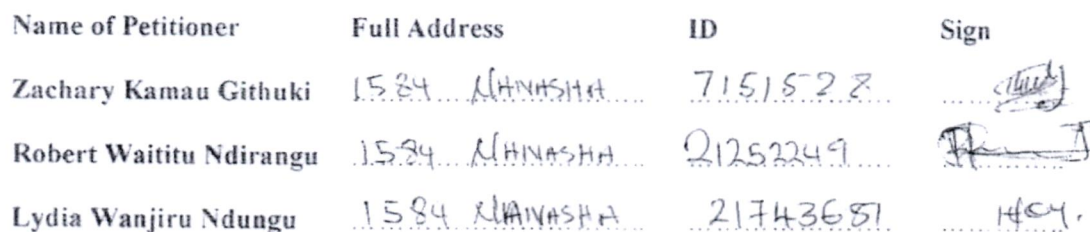 Name of Petitioner Full Address ID Sign
Zachary Kamau Githuki 1584 NAIVASHA 7151528
Robert Waititu Ndirangu 1584 NAIVASHA 21252249
Lydia Wanjiru Ndungu 1584 NAIVASHA 21743681